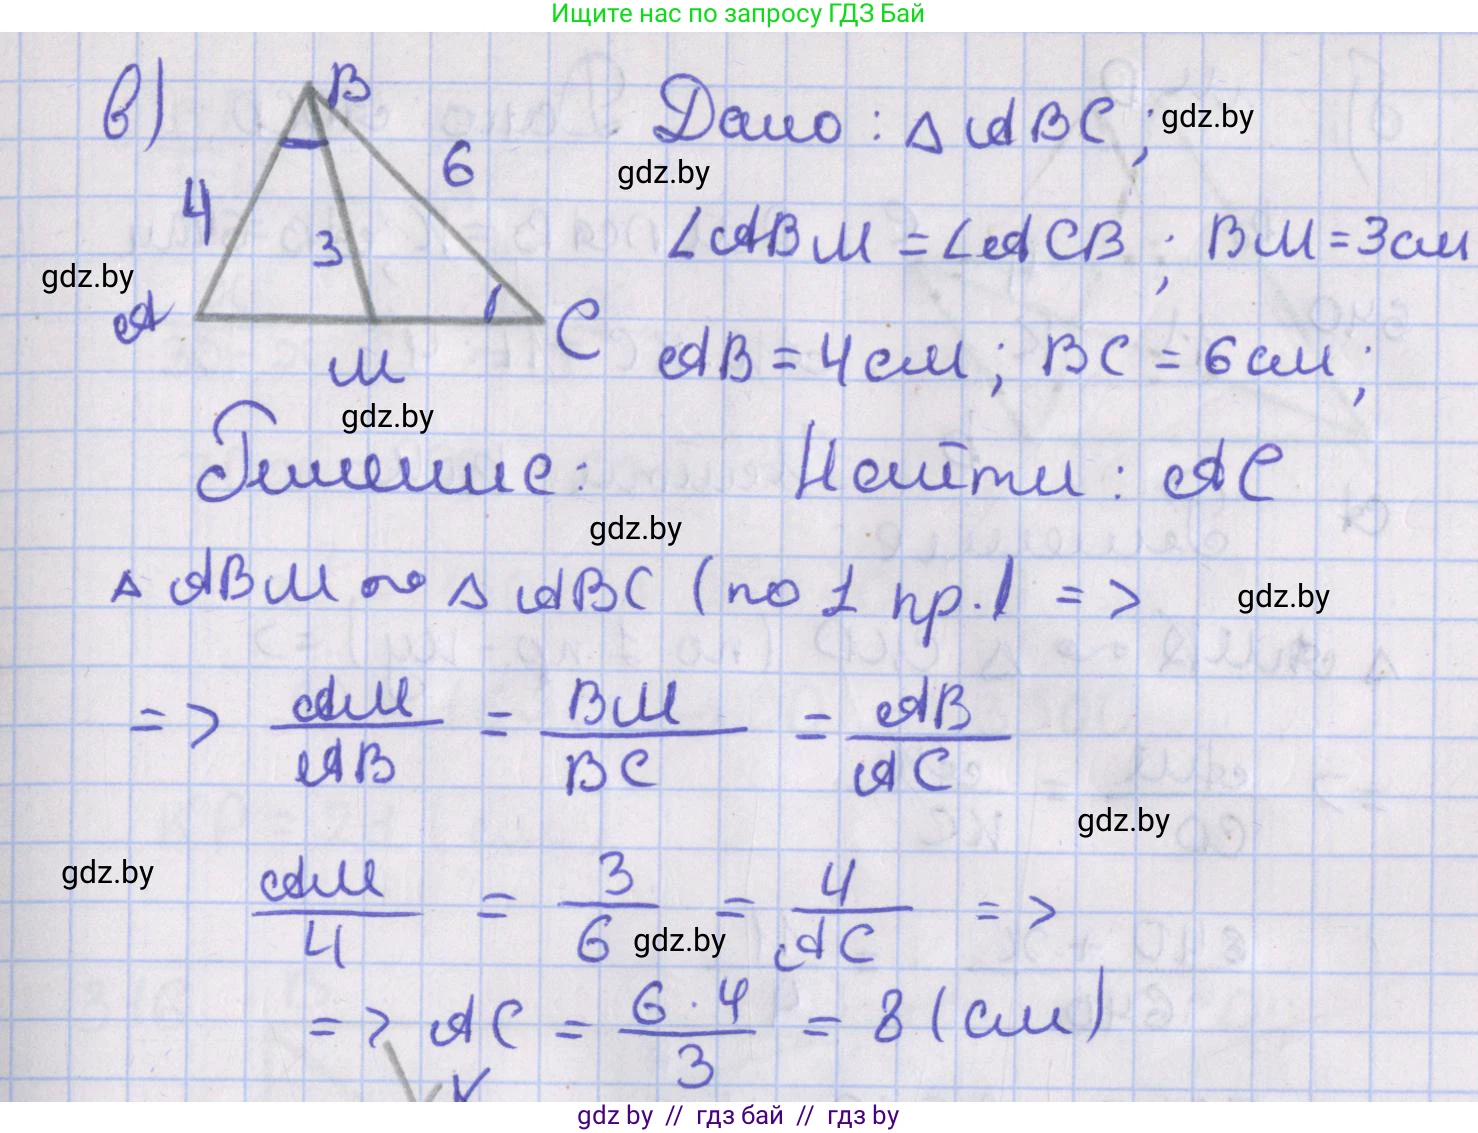 Ищите нас по запросу ГДЗ Бай
в)
B
4
6
3
A
M
C
Дано: △ ABC;
gdz.by
gdz.by
∠ABM = ∠ACB; BM = 3см
gdz.by
AB = 4 см; BC = 6 см;
gdz.by
Решение: Найти: AC
gdz.by
△ ABM ∾ △ ABC (по 1 пр.) =>
gdz.by
=> AM/AB = BM/BC = AB/AC
gdz.by
gdz.by
AM/4 = 3/6 = 4/AC =>
gdz.by
=> AC = 6 · 4/3 = 8 (см)
K
gdz by // гдз бай // гдз by